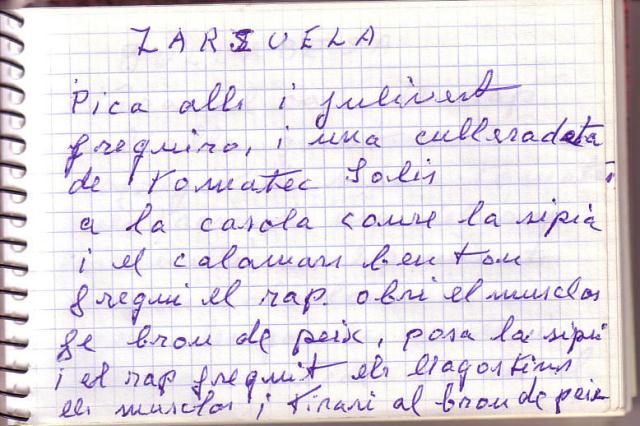 ZARZUELA
Pica alls i julivert
freguiro, i una culleradeta
de Tomatec Solis i
a la casola coure la sipia
i el calamars ben tou
fregui el rap. obri el musclos
fe brou de peix, posa la sipi
i el rap freguit els llagostins
els musclos i tirari al brou de peix